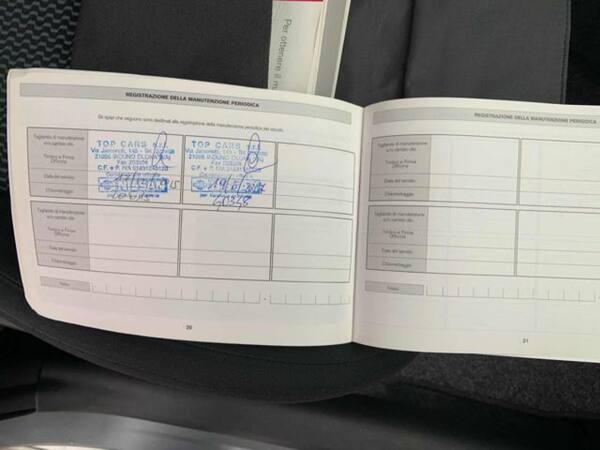 Per ottenere il m
REGISTRAZIONE DELLA MANUTENZIONE PERIODICA
Gli spazi che seguono sono destinati alla registrazione della manutenzione periodica del veicolo.
Tagliando di manutenzione
e/o cambio olio
Timbro e Firma
Officina
Data del servizio
Chilometraggio
TOP CARS s.r.l.
Via Jamoretti, 145 - Tel.
21056 INDUNO OLONA (VA)
Fax
C.F. e P. IVA
NISSAN
TOP CARS s.r.l.
Via Jamoretti, 145 - Tel.
21056 INDUNO OLONA (VA)
Fax
C.F. e P. IVA
40348
Tagliando di manutenzione
e/o cambio olio
Timbro e Firma
Officina
Data del servizio
Chilometraggio
Telaio
20
REGISTRAZIONE DELLA MANUTENZIONE PERIODICA
Tagliando di manutenzione
e/o cambio olio
Timbro e Firma
Officina
Data del servizio
Chilometraggio
Tagliando di manutenzione
e/o cambio olio
Timbro e Firma
Officina
Data del servizio
Chilometraggio
Telaio
21